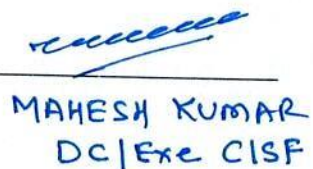 MAHESH KUMAR
DC|Exe CISF